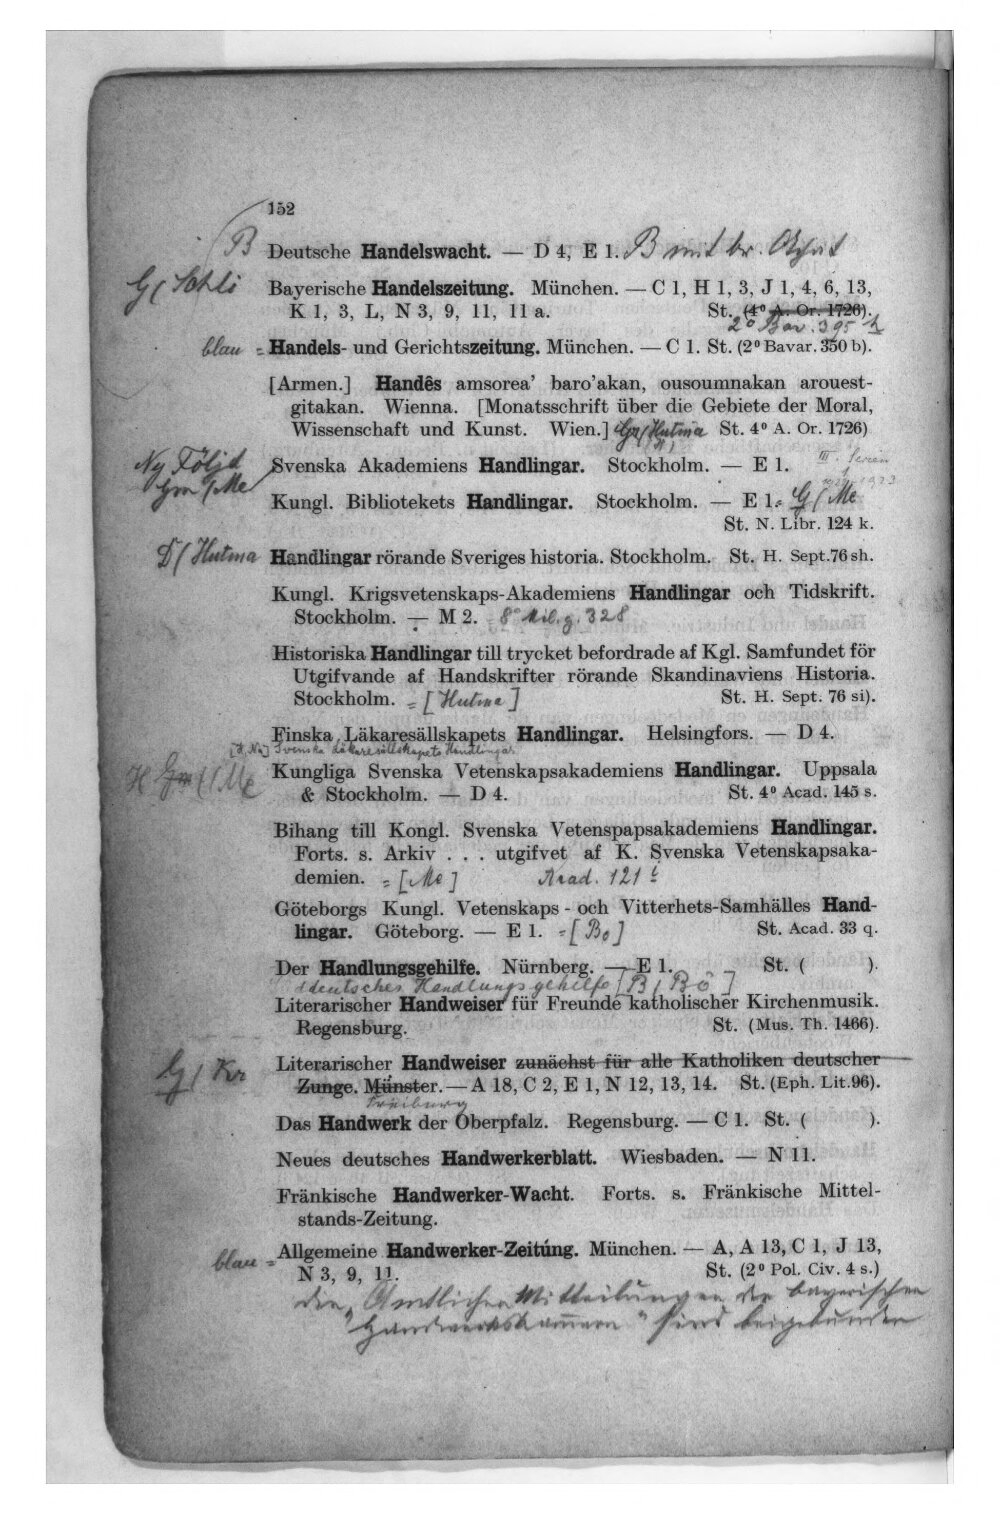 152
B Deutsche Handelswacht. — D 4, E 1. B mit br.
G / Schli Bayerische Handelszeitung. München. — C 1, H 1, 3, J 1, 4, 6, 13,
K 1, 3, L, N 3, 9, 11, 11 a. St. (4º A. Or. 1726).
2º Bav. 395 h
blau = Handels- und Gerichtszeitung. München. — C 1. St. (2º Bavar. 350 b).
[Armen.] Handês amsorea' baro'akan, ousoumnakan arouest-
gitakan. Wienna. [Monatsschrift über die Gebiete der Moral,
Wissenschaft und Kunst. Wien.] Hutma St. 4º A. Or. 1726)
Ny Följd Svenska Akademiens Handlingar. Stockholm. — E 1. III. Serien
Gm / Me
Kungl. Bibliotekets Handlingar. Stockholm. — E 1. = G / Me
St. N. Libr. 124 k.
D / Hutma Handlingar rörande Sveriges historia. Stockholm. St. H. Sept. 76 sh.
Kungl. Krigsvetenskaps-Akademiens Handlingar och Tidskrift.
Stockholm. — M 2. 8º Mil. g. 328
Historiska Handlingar till trycket befordrade af Kgl. Samfundet för
Utgifvande af Handskrifter rörande Skandinaviens Historia.
Stockholm. = [Hutma] St. H. Sept. 76 si).
Finska Läkaresällskapets Handlingar. Helsingfors. — D 4.
Svenska Läkaresällskapets Handlingar
H Gm / Me Kungliga Svenska Vetenskapsakademiens Handlingar. Uppsala
& Stockholm. — D 4. St. 4º Acad. 145 s.
Bihang till Kongl. Svenska Vetenspapsakademiens Handlingar.
Forts. s. Arkiv . . . utgifvet af K. Svenska Vetenskapsaka-
demien. = [Me] Acad. 121 t
Göteborgs Kungl. Vetenskaps- och Vitterhets-Samhälles Hand-
lingar. Göteborg. — E 1. = [Bo] St. Acad. 33 q.
Der Handlungsgehilfe. Nürnberg. — E 1. St. ( ).
deutscher Handlungsgehilfe [B / Bö]
Literarischer Handweiser für Freunde katholischer Kirchenmusik.
Regensburg. St. (Mus. Th. 1466).
G / Kr Literarischer Handweiser zunächst für alle Katholiken deutscher
Zunge. Münster. — A 18, C 2, E 1, N 12, 13, 14. St. (Eph. Lit. 96).
Freiburg
Das Handwerk der Oberpfalz. Regensburg. — C 1. St. ( ).
Neues deutsches Handwerkerblatt. Wiesbaden. — N 11.
Fränkische Handwerker-Wacht. Forts. s. Fränkische Mittel-
stands-Zeitung.
blau = Allgemeine Handwerker-Zeitung. München. — A, A 13, C 1, J 13,
N 3, 9, 11. St. (2º Pol. Civ. 4 s.)
den "Amtlichen Mitteilungen der bayerischen
Handwerkskammern" sind beigebunden